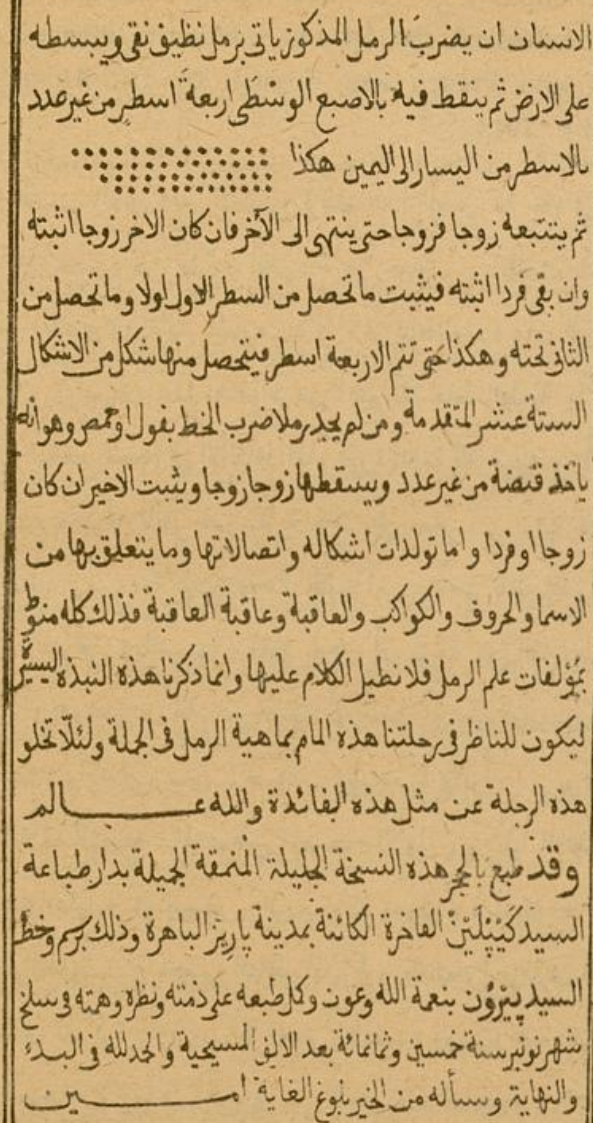 الانسان ان يضرب الرمل المذكور ياتى برمل نظيف نقى ويبسطه
على الارض ثم ينقط فيه بالاصبع الوسطى اربعة اسطر من غير عدد
بالاسطر من اليسار الى اليمين هكذا
ثم يتتبعه زوجا فزوجا حتى ينتهى الى الآخر فان كان الاخر زوجا اثبته
وان بقى فردا اثبته فيثبت ما تحصل من السطر الاول اولا وما تحصل من
الثانى تحته وهكذا حتى تتم الاربعة اسطر فيتحصل منها شكل من الاشكال
الستة عشر المتقدمة ومن لم يجد رملا ضرب الخط بفول او حمص وهو انه
ياخذ قبضة من غير عدد ويسقطها زوجا زوجا ويثبت الاخير ان كان
زوجا او فردا واما تولدات اشكاله واتصالاتها وما يتعلق بها من
الاسما والحروف والكواكب والعاقبة وعاقبة العاقبة فذلك كله منوط
بمؤلفات علم الرمل فلا نطيل الكلام عليها وانما ذكرنا هذه النبذه اليسيرة
ليكون للناظر فى رحلتنا هذه المام بماهية الرمل فى الجملة ولئلا تخلو
هذه الرحلة عن مثل هذه الفائدة والله عالم
وقد طبع بالحجر هذه النسخة الجليلة المنمقة الجميلة بدار طباعة
السيد كَيْپْلَيْنْ الفاخرة الكائنة بمدينة پاريز الباهرة وذلك برسم وخط
السيد پيرون بنعمة الله وعون وكمل طبعه على ذمته ونظره وهمته فى سلخ
شهر نونبر سنة خمسين وثمانمائة بعد الالف المسيحية والحمد لله فى البدء
والنهاية ونساله من الخير بلوغ الغاية امين